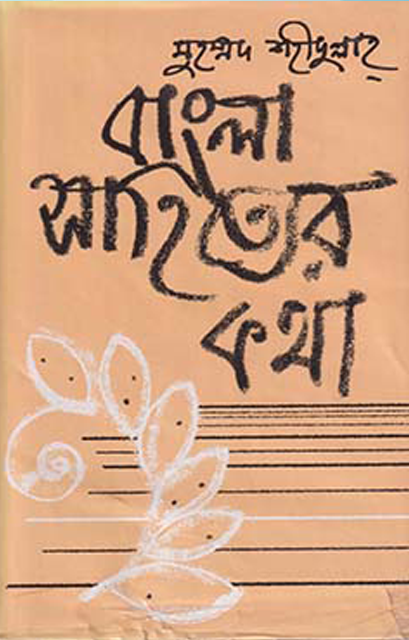 মুহম্মদ শহীদুল্লাহ্
বাংলা
সাহিত্যের
কথা